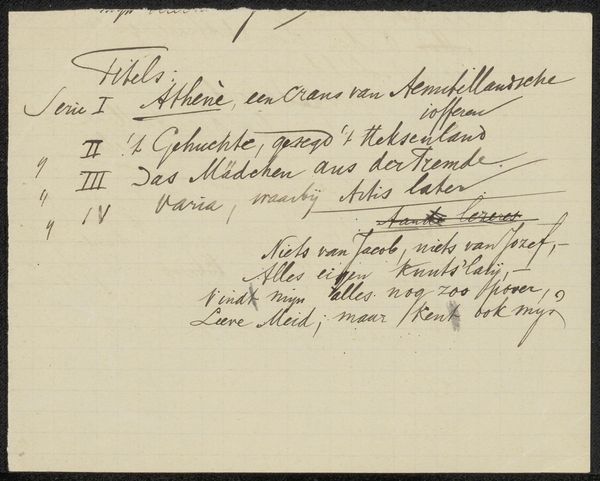 Titels:
Serie I Athène, een crans van Aemstellandsche
iofferen
" II 't Gehuchte, gesegd 't Heksenland
" III Das Mädchen aus der Fremde.
" IV Varia, waarbij Artis later
Aan de lezeres
Niets van Jacob, niets van Jozef, –
Alles eigen
Vindt mijn alles nog zoo pover,
Lieve Meid; maar kent ook mijn